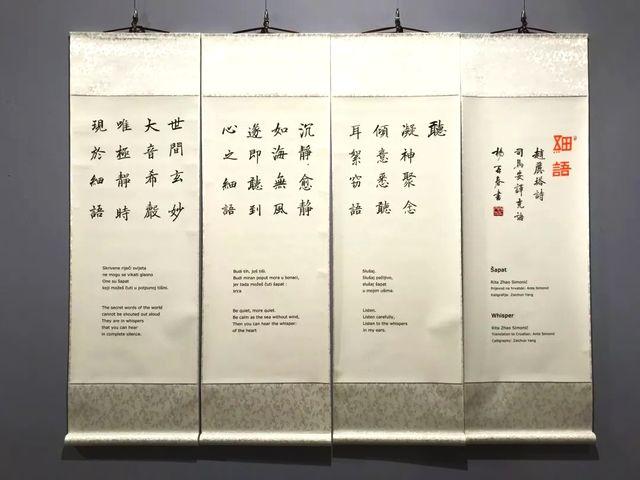 細語
詩
司馬安譯克語
楊再春書
Šapat
Rita Zhao Simonić
Prijevod na hrvatski: Ante Simonić
Kaligrafija: Zaichun Yang
Whisper
Rita Zhao Simonić
Translation to Croatian: Ante Simonić
Calligraphy: Zaichun Yang
聽
凝神聚念
傾意悉聽
耳絮窃語
Slušaj.
Slušaj pažljivo,
slušaj šapat
u mojim ušima.
Listen.
Listen carefully,
Listen to the whispers
in my ears.
沉靜愈静
如海無風
邃即聽到
心之細語
Budi tih, još tiši.
Budi miran poput mora u bonaci,
jer tada možeš čuti šapat :
srca
Be quiet, more quiet.
Be calm as the sea without wind,
Then you can hear the whisper:
of the heart
世間玄妙
大音希聲
唯極靜時
現於細語
Skrivene riječi svijeta
ne mogu se vikati glasno
One su šapat
koji možeš čuti u potpunoj tišini.
The secret words of the world
cannot be shouted out aloud
They are in whispers
that you can hear
in complete silence.